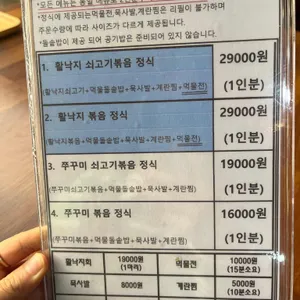 *모든 메뉴는 통일
*정식에 제공되는먹물전,묵사발,계란찜은 리필이 불가하며
주문수량에 따라 사이즈가 다르게 제공됩니다.
*돌솥밥이 제공 되어 공기밥은 준비되어 있지 않습니다.
1. 활낙지 쇠고기볶음 정식 29000원
(활낙지쇠고기볶음+먹물돌솥밥+묵사발+계란찜+먹물전) (1인분)
2. 활낙지 볶음 정식 29000원
(활낙지볶음+먹물돌솥밥+묵사발+계란찜+먹물전) (1인분)
3. 쭈꾸미 쇠고기볶음 정식 19000원
(쭈꾸미쇠고기볶음+먹물돌솥밥+묵사발+계란찜) (1인분)
4. 쭈꾸미 볶음 정식 16000원
(쭈꾸미볶음+먹물돌솥밥+묵사발+계란찜) (1인분)
활낙지회 19000원 (1마리) 먹물전 10000원 (15분소요)
묵사발 8000원 계란찜 5000원 (10분소요)